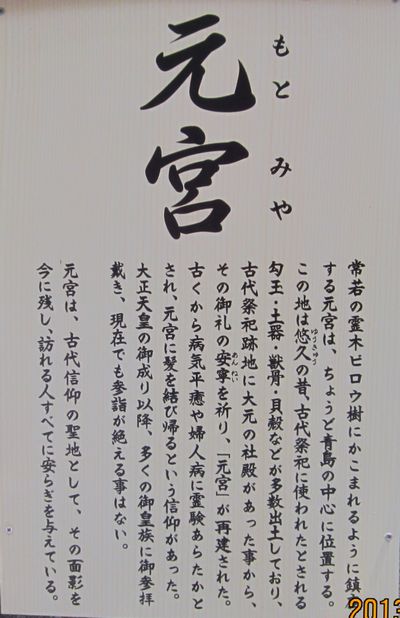 元宮
もとみや
常若の霊木ビロウ樹にかこまれるように鎮
する元宮は、ちょうど青島の中心に位置する。
この地は悠久の昔、古代祭祀に使われたとされる
ゆうきゅう
勾玉・土器・獣骨・貝殻などが多数出土しており、
古代祭祀跡地に大元の社殿があった事から、
その御礼の安寧を祈り、「元宮」が再建された。
あんねい
古くから病気平癒や婦人病に霊験あらたかと
され、元宮に髪を結び帰るという信仰があった。
大正天皇の御成り以降、多くの御皇族に御参拝
戴き、現在でも参詣が絶える事はない。
元宮は、古代信仰の聖地として、その面影を
今に残し、訪れる人すべてに安らぎを与えている。
2013